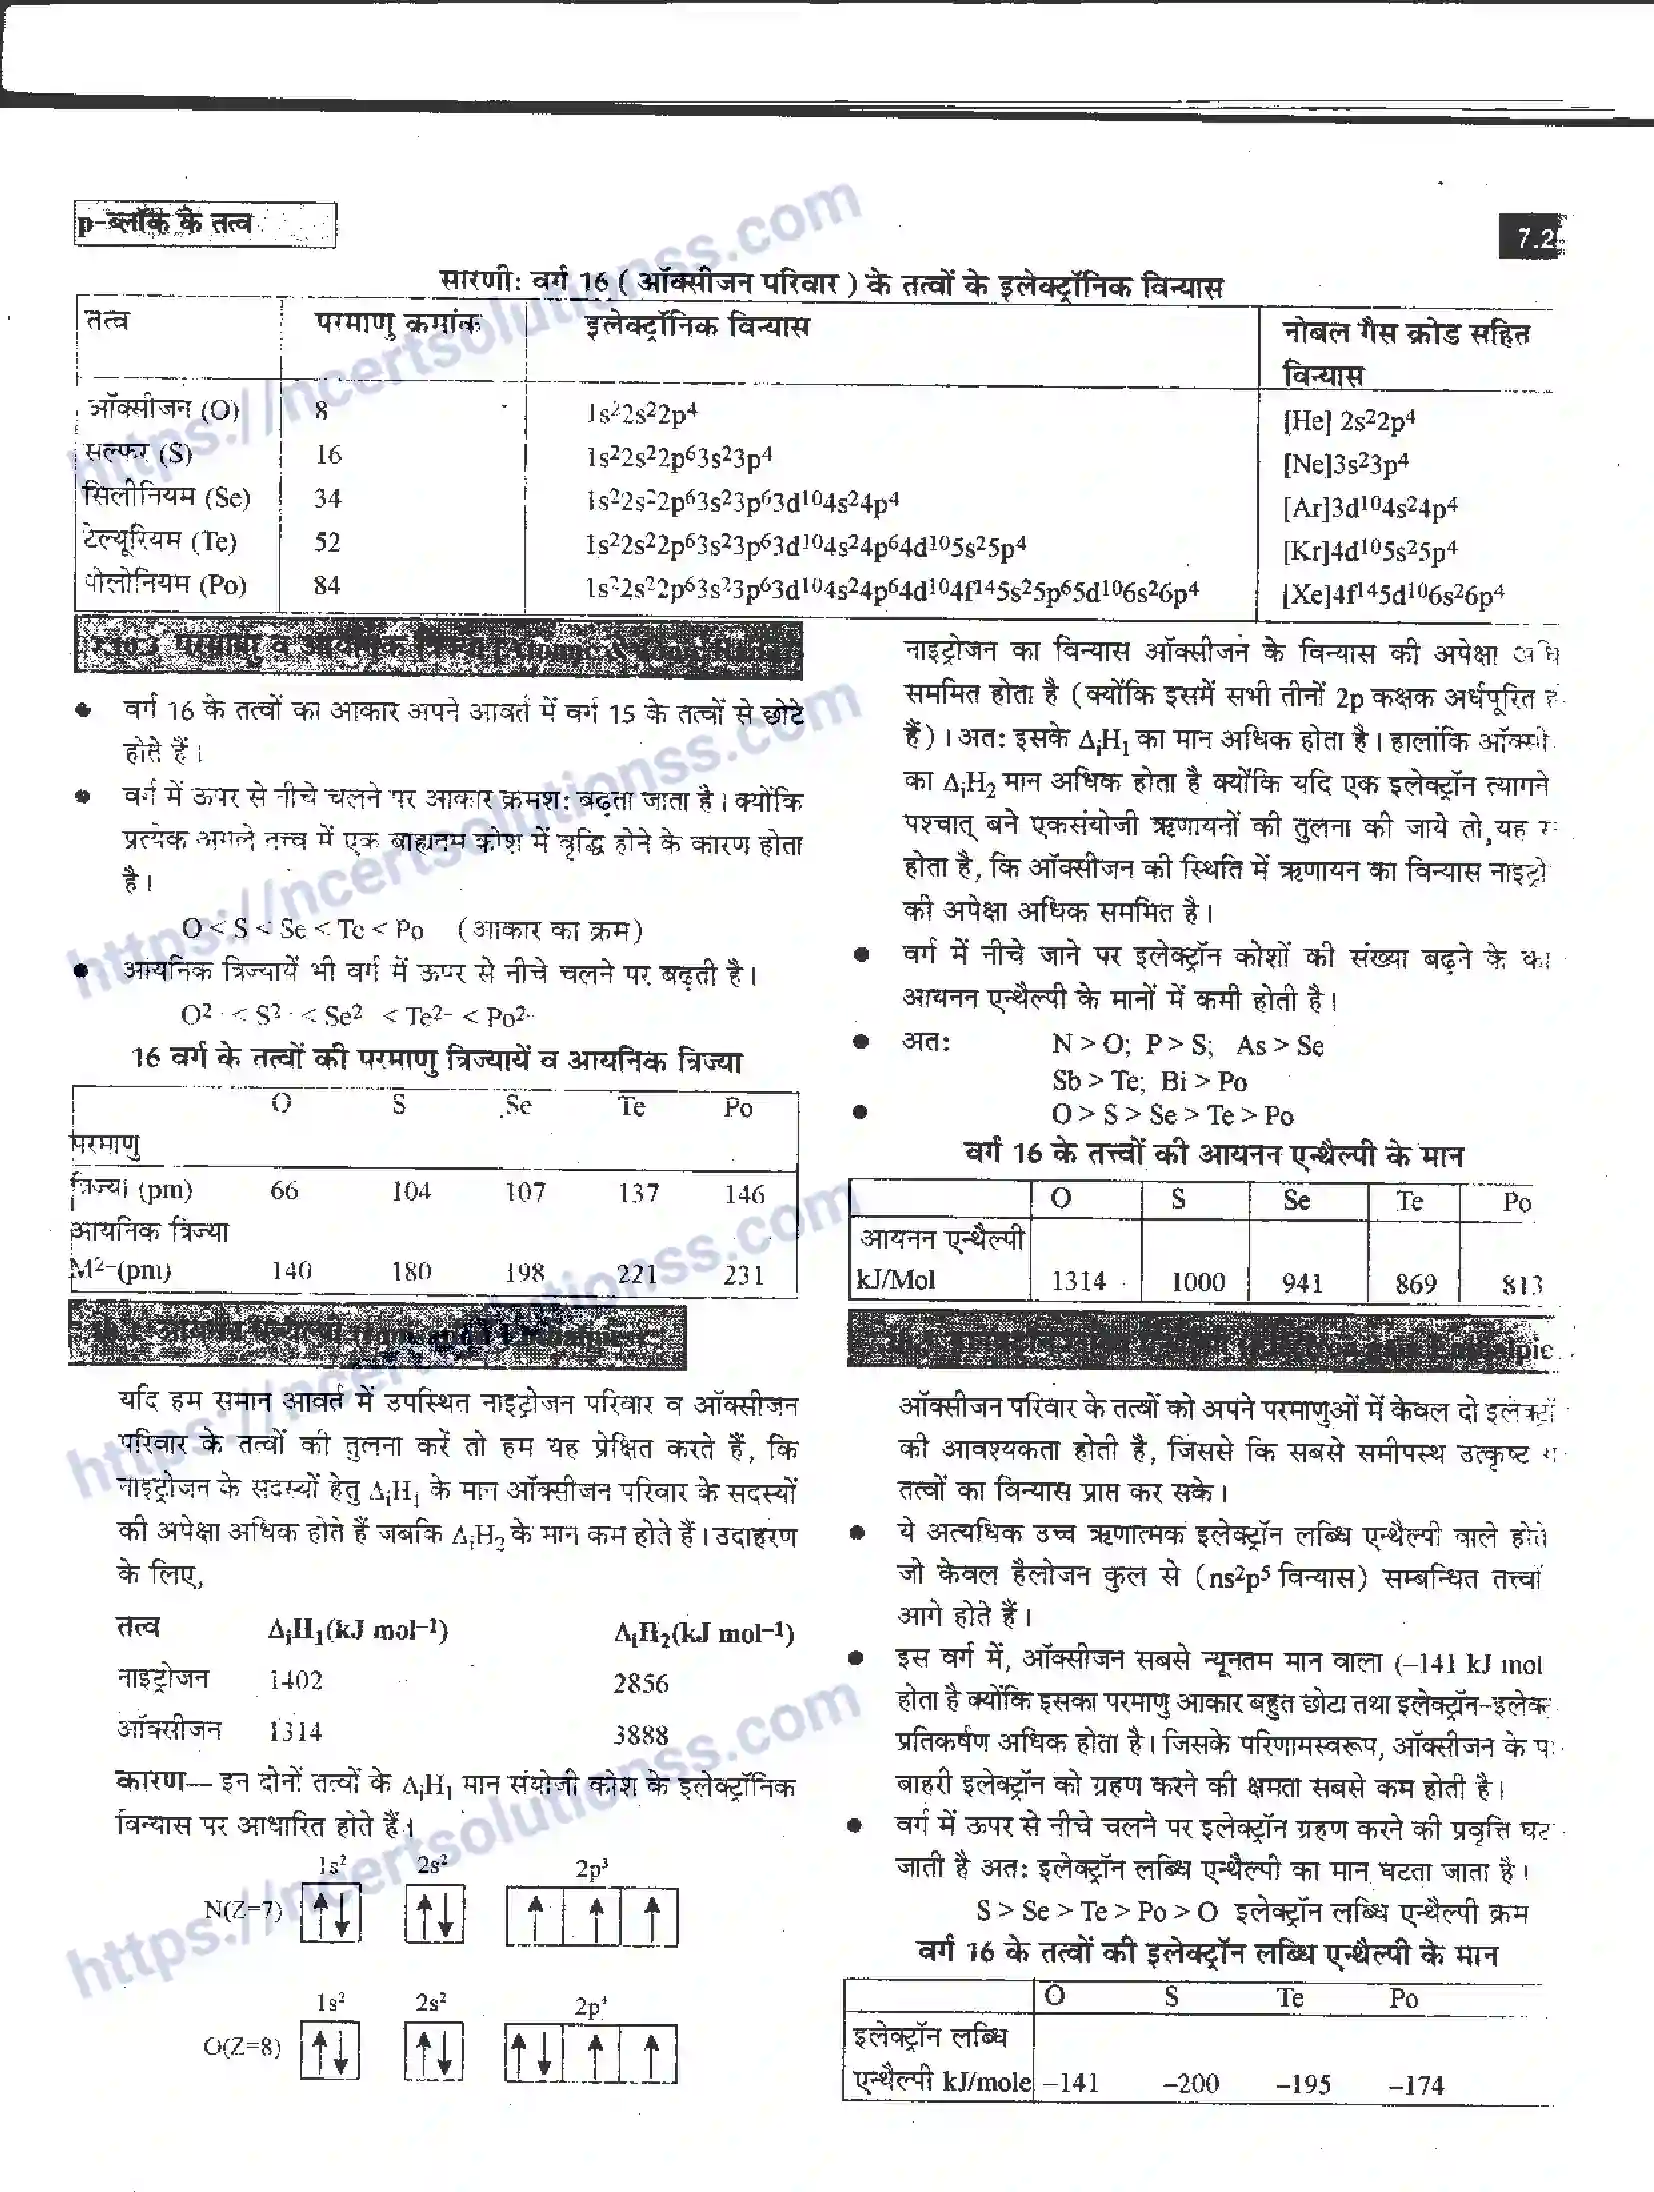 p-ब्लॉक के तत्व
7.2
सारणी: वर्ग 16 ( ऑक्सीजन परिवार ) के तत्वों के इलेक्ट्रॉनिक विन्यास
तत्व परमाणु क्रमांक इलेक्ट्रॉनिक विन्यास नोबल गैस क्रोड सहित
विन्यास
ऑक्सीजन (O) 8 1s²2s²2p⁴ [He] 2s²2p⁴
सल्फर (S) 16 1s²2s²2p⁶3s²3p⁴ [Ne]3s²3p⁴
सिलीनियम (Se) 34 1s²2s²2p⁶3s²3p⁶3d¹⁰4s²4p⁴ [Ar]3d¹⁰4s²4p⁴
टेल्यूरियम (Te) 52 1s²2s²2p⁶3s²3p⁶3d¹⁰4s²4p⁶4d¹⁰5s²5p⁴ [Kr]4d¹⁰5s²5p⁴
पोलोनियम (Po) 84 1s²2s²2p⁶3s²3p⁶3d¹⁰4s²4p⁶4d¹⁰4f¹⁴5s²5p⁶5d¹⁰6s²6p⁴ [Xe]4f¹⁴5d¹⁰6s²6p⁴
परमाणु व आयनिक त्रिज्या
● वर्ग 16 के तत्वों का आकार अपने आवर्त में वर्ग 15 के तत्वों से छोटे
होते हैं।
● वर्ग में ऊपर से नीचे चलने पर आकार क्रमश: बढ़ता जाता है। क्योंकि
प्रत्येक अगले तत्त्व में एक बाह्यतम कोश में वृद्धि होने के कारण होता
है।
O < S < Se < Te < Po (आकार का क्रम)
● आयनिक त्रिज्यायें भी वर्ग में ऊपर से नीचे चलने पर बढ़ती है।
O²⁻ < S²⁻ < Se²⁻ < Te²⁻ < Po²⁻
16 वर्ग के तत्वों की परमाणु त्रिज्यायें व आयनिक त्रिज्या
O S Se Te Po
परमाणु
त्रिज्या (pm) 66 104 107 137 146
आयनिक त्रिज्या
M²⁻(pm) 140 180 198 221 231
यदि हम समान आवर्त में उपस्थित नाइट्रोजन परिवार व ऑक्सीजन
परिवार के तत्वों की तुलना करें तो हम यह प्रेक्षित करते हैं, कि
नाइट्रोजन के सदस्यों हेतु ΔᵢH₁ के मान ऑक्सीजन परिवार के सदस्यों
की अपेक्षा अधिक होते हैं जबकि ΔᵢH₂ के मान कम होते हैं। उदाहरण
के लिए,
तत्व ΔᵢH₁(kJ mol⁻¹) ΔᵢH₂(kJ mol⁻¹)
नाइट्रोजन 1402 2856
ऑक्सीजन 1314 3888
कारण— इन दोनों तत्वों के ΔᵢH₁ मान संयोजी कोश के इलेक्ट्रॉनिक
विन्यास पर आधारित होते हैं।
1s² 2s² 2p³
N(Z=7) ↑↓ ↑↓ ↑ ↑ ↑
1s² 2s² 2p⁴
O(Z=8) ↑↓ ↑↓ ↑↓ ↑ ↑
नाइट्रोजन का विन्यास ऑक्सीजन के विन्यास की अपेक्षा
सममित होता है (क्योंकि इसमें सभी तीनों 2p कक्षक अर्धपूरित
हैं)। अत: इसके ΔᵢH₁ का मान अधिक होता है। हालांकि ऑक्सी
का ΔᵢH₂ मान अधिक होता है क्योंकि यदि एक इलेक्ट्रॉन त्यागने
पश्चात् बने एकसंयोजी ऋणायनों की तुलना की जाये तो, यह
होता है, कि ऑक्सीजन की स्थिति में ऋणायन का विन्यास नाइट्रो
की अपेक्षा अधिक सममित है।
● वर्ग में नीचे जाने पर इलेक्ट्रॉन कोशों की संख्या बढ़ने के का
आयनन एन्थैल्पी के मानों में कमी होती है।
● अत: N > O; P > S; As > Se
Sb > Te; Bi > Po
● O > S > Se > Te > Po
वर्ग 16 के तत्त्वों की आयनन एन्थैल्पी के मान
O S Se Te Po
आयनन एन्थैल्पी
kJ/Mol 1314 1000 941 869 813
ऑक्सीजन परिवार के तत्वों को अपने परमाणुओं में केवल दो इलेक्ट्रॉ
की आवश्यकता होती है, जिससे कि सबसे समीपस्थ उत्कृष्ट
तत्वों का विन्यास प्राप्त कर सके।
● ये अत्यधिक उच्च ऋणात्मक इलेक्ट्रॉन लब्धि एन्थैल्पी वाले होते
जो केवल हैलोजन कुल से (ns²p⁵ विन्यास) सम्बन्धित तत्त्वों
आगे होते हैं।
● इस वर्ग में, ऑक्सीजन सबसे न्यूनतम मान वाला (–141 kJ mol
होता है क्योंकि इसका परमाणु आकार बहुत छोटा तथा इलेक्ट्रॉन-इलेक्
प्रतिकर्षण अधिक होता है। जिसके परिणामस्वरूप, ऑक्सीजन के
बाहरी इलेक्ट्रॉन को ग्रहण करने की क्षमता सबसे कम होती है।
● वर्ग में ऊपर से नीचे चलने पर इलेक्ट्रॉन ग्रहण करने की प्रवृत्ति घट
जाती है अत: इलेक्ट्रॉन लब्धि एन्थैल्पी का मान घटता जाता है।
S > Se > Te > Po > O इलेक्ट्रॉन लब्धि एन्थैल्पी क्रम
वर्ग 16 के तत्वों की इलेक्ट्रॉन लब्धि एन्थैल्पी के मान
O S Te Po
इलेक्ट्रॉन लब्धि
एन्थैल्पी kJ/mole –141 –200 –195 –174
https://ncertsolutionss.com
https://ncertsolutionss.com
https://ncertsolutionss.com
https://ncertsolutionss.com